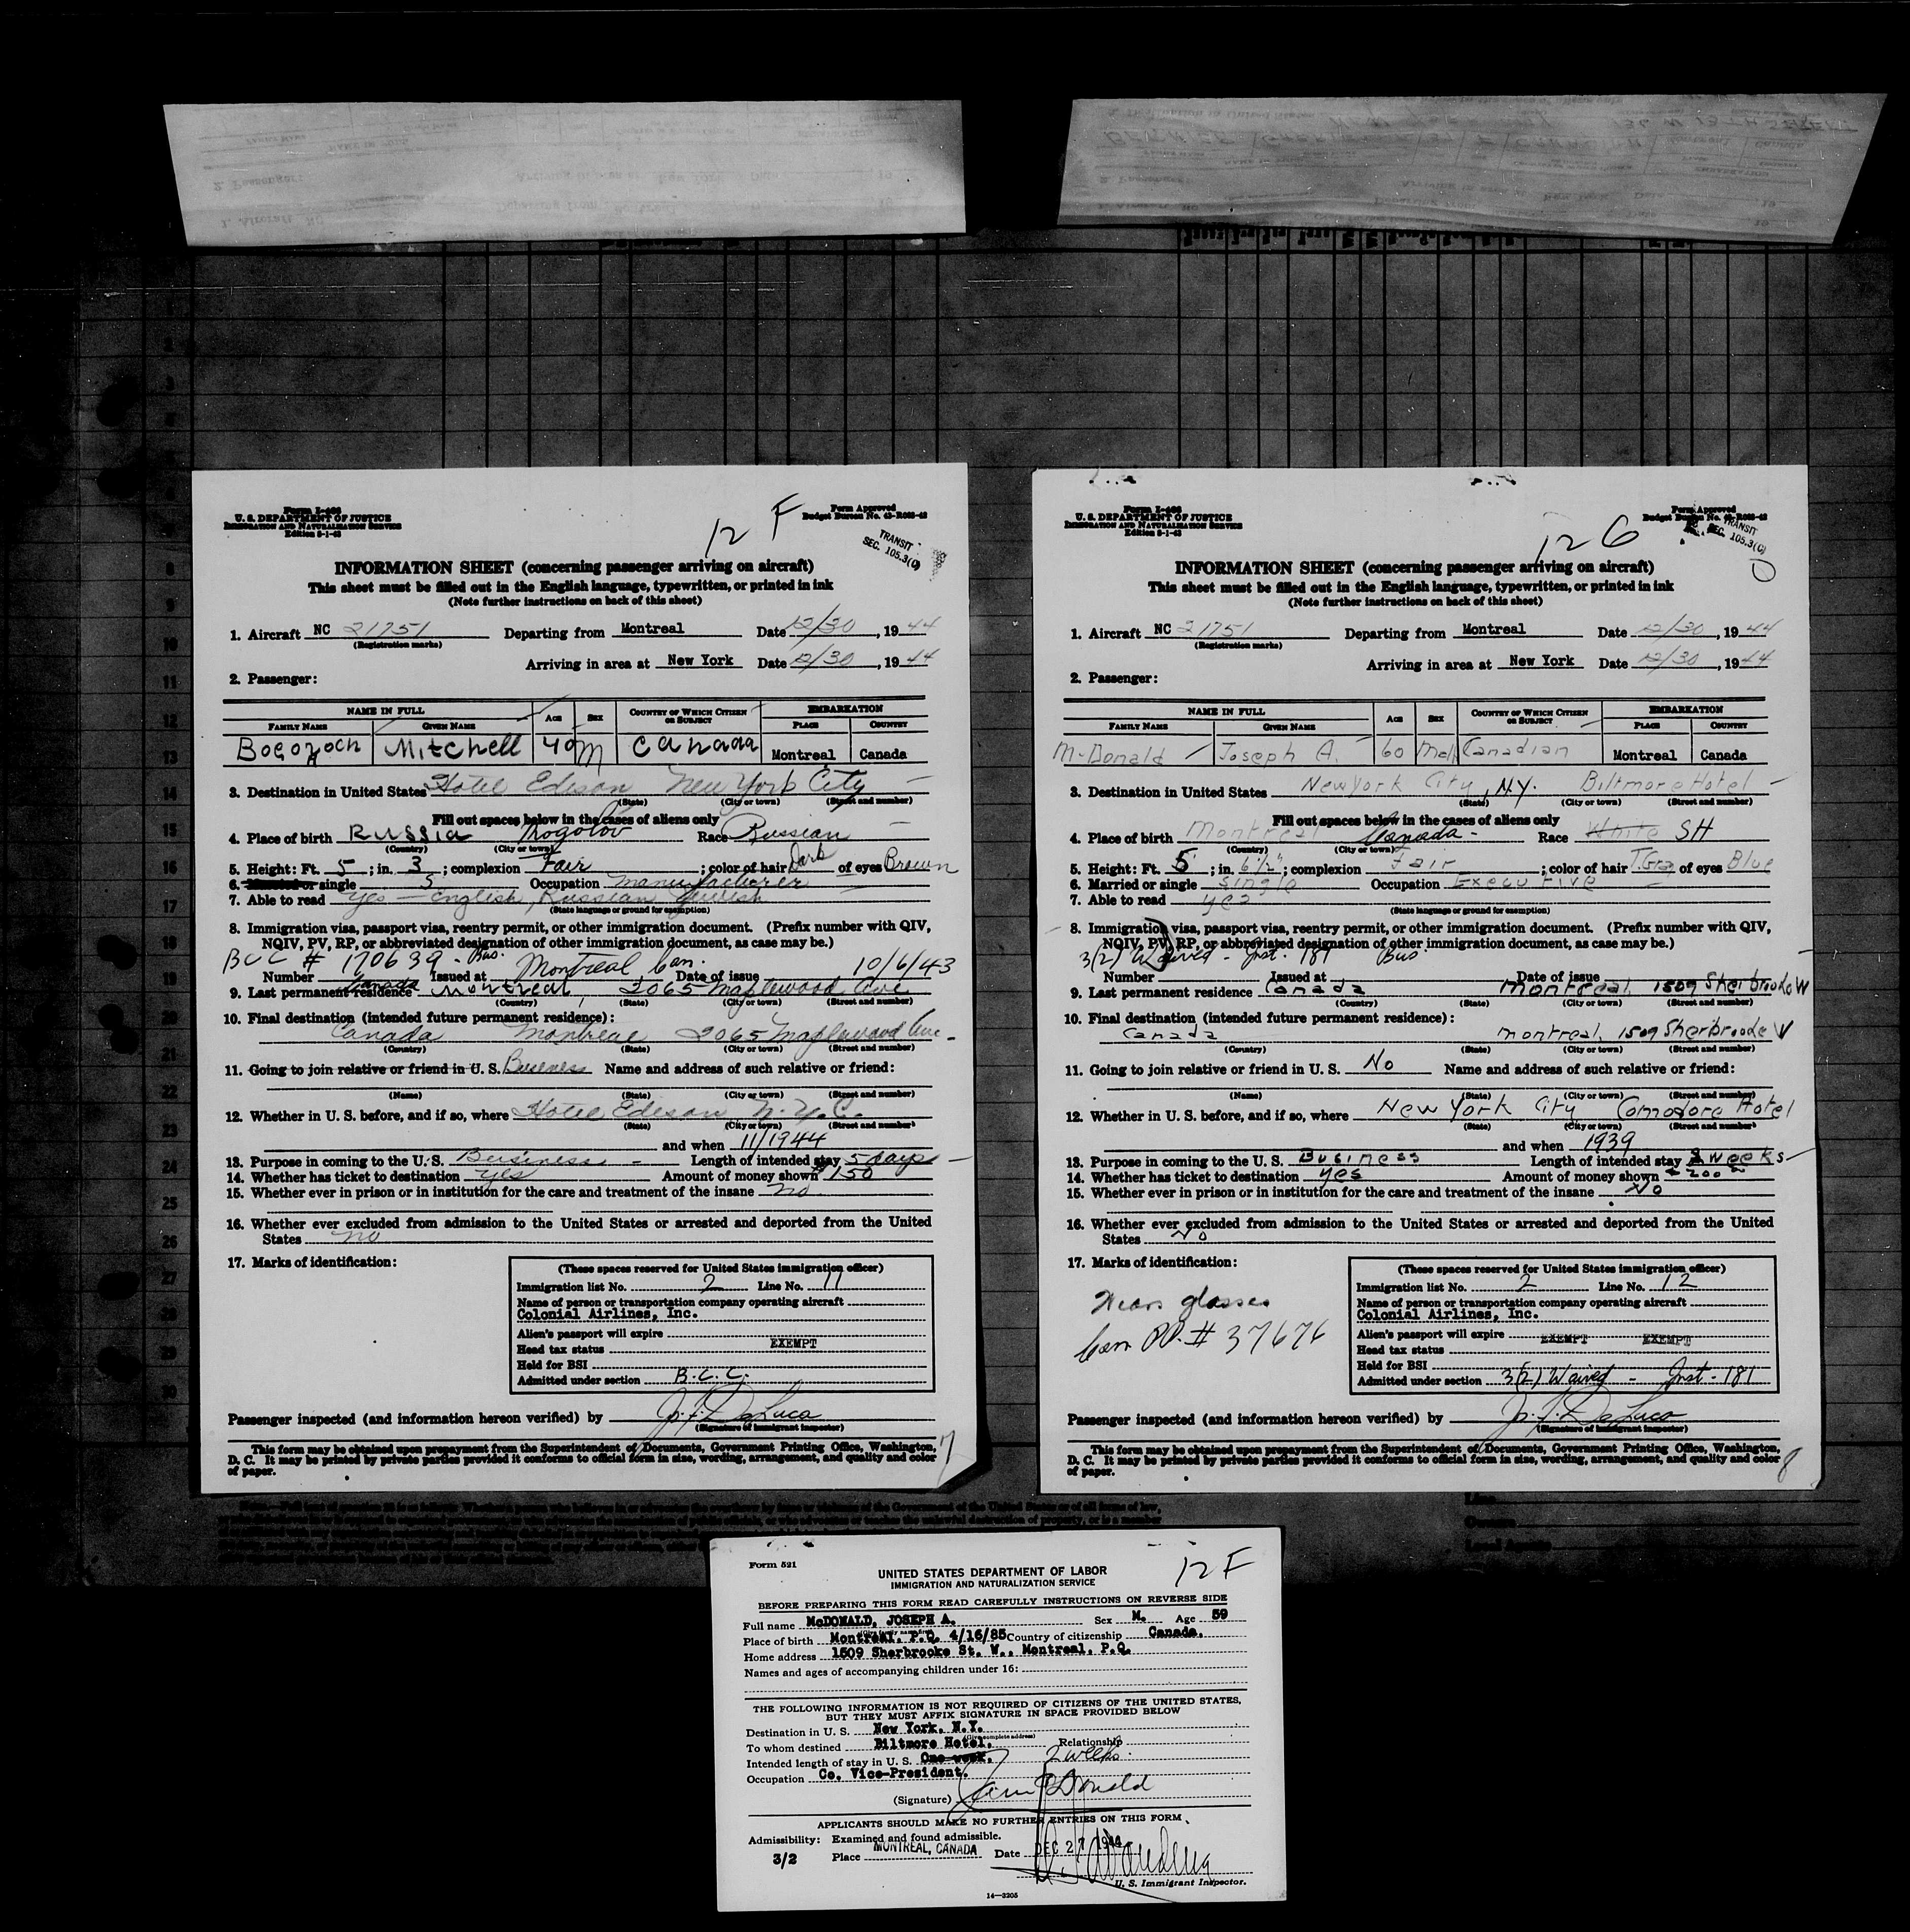 Form I-466
U. S. DEPARTMENT OF JUSTICE
IMMIGRATION AND NATURALIZATION SERVICE
Edition 5-1-43
12 F
Form Approved
Budget Bureau No. 43-R065-42
TRANSIT
SEC. 105.3(0)
INFORMATION SHEET (concerning passenger arriving on aircraft)
This sheet must be filled out in the English language, typewritten, or printed in ink
(Note further instructions on back of this sheet)
1. Aircraft NC 21751 Departing from Montreal Date 12/30, 1944
(Registration marks)
Arriving in area at New York Date 12/30, 1944
2. Passenger:
NAME IN FULL AGE SEX COUNTRY OF WHICH CITIZEN OR SUBJECT EMBARKATION
FAMILY NAME GIVEN NAME PLACE COUNTRY
Mitchell 40 M Canada Montreal Canada
3. Destination in United States Hotel Edison New York City
(State) (City or town) (Street and number)
Fill out spaces below in the cases of aliens only
4. Place of birth Russia Rogolov Race Russian
(Country) (City or town)
5. Height: Ft. 5; in. 3; complexion Fair; color of hair Dark of eyes Brown
6. Married or single S Occupation Manufacturer
7. Able to read Yes - English, Russian Yiddish
(State language or ground for exemption)
8. Immigration visa, passport visa, reentry permit, or other immigration document. (Prefix number with QIV,
NQIV, PV, RP, or abbreviated designation of other immigration document, as case may be.)
BCC # 170639 - Bus. Montreal Can. 10/6/43
Number Issued at Date of issue
9. Last permanent residence Canada Montreal, 2065 Maplewood Ave
(Country) (State) (City or town) (Street and number)
10. Final destination (intended future permanent residence):
Canada Montreal 2065 Maplewood Ave.
(Country) (State) (City or town) (Street and number)
11. Going to join relative or friend in U. S. Business Name and address of such relative or friend:
(Name) (State) (City or town) (Street and number)
12. Whether in U. S. before, and if so, where Hotel Edison N.Y.C.
(State) (City or town) (Street and number)
and when 11/1944
13. Purpose in coming to the U. S. Business - Length of intended stay 5 days
14. Whether has ticket to destination yes Amount of money shown $150
15. Whether ever in prison or in institution for the care and treatment of the insane no
16. Whether ever excluded from admission to the United States or arrested and deported from the United
States no
17. Marks of identification:
(These spaces reserved for United States immigration officer)
Immigration list No. 2 Line No. 11
Name of person or transportation company operating aircraft
Colonial Airlines, Inc.
Alien's passport will expire
Head tax status EXEMPT
Held for BSI
Admitted under section B.C.C.
Passenger inspected (and information hereon verified) by J. F. DeLuca
(Signature of immigrant inspector)
This form may be obtained upon prepayment from the Superintendent of Documents, Government Printing Office, Washington,
D. C. It may be printed by private parties provided it conforms to official form in size, wording, arrangement, and quality and color
of paper.
7
Form I-466
U. S. DEPARTMENT OF JUSTICE
IMMIGRATION AND NATURALIZATION SERVICE
Edition 5-1-43
12 G
Form Approved
Budget Bureau No. 43-R065-42
TRANSIT
SEC. 105.3(0)
INFORMATION SHEET (concerning passenger arriving on aircraft)
This sheet must be filled out in the English language, typewritten, or printed in ink
(Note further instructions on back of this sheet)
1. Aircraft NC 21751 Departing from Montreal Date 12/30, 1944
(Registration marks)
Arriving in area at New York Date 12/30, 1944
2. Passenger:
NAME IN FULL AGE SEX COUNTRY OF WHICH CITIZEN OR SUBJECT EMBARKATION
FAMILY NAME GIVEN NAME PLACE COUNTRY
McDonald Joseph A. 60 Male Canadian Montreal Canada
3. Destination in United States New York City, N.Y. Biltmore Hotel
(State) (City or town) (Street and number)
Fill out spaces below in the cases of aliens only
4. Place of birth Montreal Canada - Race White SH
(Country) (City or town)
5. Height: Ft. 5; in. 6 1/2"; complexion Fair; color of hair Gray of eyes Blue
6. Married or single Single Occupation Executive
7. Able to read yes
(State language or ground for exemption)
8. Immigration visa, passport visa, reentry permit, or other immigration document. (Prefix number with QIV,
NQIV, PV, RP, or abbreviated designation of other immigration document, as case may be.)
3(2) Waived - Inst. 181 Bus
Number Issued at Date of issue
9. Last permanent residence Canada Montreal 1509 Sherbrooke W
(Country) (State) (City or town) (Street and number)
10. Final destination (intended future permanent residence):
Canada Montreal, 1509 Sherbrooke W
(Country) (State) (City or town) (Street and number)
11. Going to join relative or friend in U. S. No Name and address of such relative or friend:
(Name) (State) (City or town) (Street and number)
12. Whether in U. S. before, and if so, where New York City Comodore Hotel
(State) (City or town) (Street and number)
and when 1939
13. Purpose in coming to the U. S. Business Length of intended stay 2 weeks
14. Whether has ticket to destination yes Amount of money shown 200
15. Whether ever in prison or in institution for the care and treatment of the insane No
16. Whether ever excluded from admission to the United States or arrested and deported from the United
States No
17. Marks of identification:
Wears glasses
Can PP. # 37676
(These spaces reserved for United States immigration officer)
Immigration list No. 2 Line No. 12
Name of person or transportation company operating aircraft
Colonial Airlines, Inc.
Alien's passport will expire EXEMPT EXEMPT
Head tax status
Held for BSI
Admitted under section 3(2) Waived - Inst - 181
Passenger inspected (and information hereon verified) by J. F. DeLuca
(Signature of immigrant inspector)
This form may be obtained upon prepayment from the Superintendent of Documents, Government Printing Office, Washington,
D. C. It may be printed by private parties provided it conforms to official form in size, wording, arrangement, and quality and color
of paper.
8
Form 521
12 F
UNITED STATES DEPARTMENT OF LABOR
IMMIGRATION AND NATURALIZATION SERVICE
BEFORE PREPARING THIS FORM READ CAREFULLY INSTRUCTIONS ON REVERSE SIDE
Full name McDONALD, JOSEPH A. Sex M. Age 59
Place of birth Montreal, P.Q. 4/16/85 Country of citizenship Canada.
Home address 1509 Sherbrooke St. W., Montreal, P.Q.
Names and ages of accompanying children under 16:
THE FOLLOWING INFORMATION IS NOT REQUIRED OF CITIZENS OF THE UNITED STATES,
BUT THEY MUST AFFIX SIGNATURE IN SPACE PROVIDED BELOW
Destination in U. S. New York, N.Y.
(Give complete address)
To whom destined Biltmore Hotel, Relationship
Intended length of stay in U. S. One week, 2 weeks.
Occupation Co. Vice-President.
(Signature)
APPLICANTS SHOULD MAKE NO FURTHER ENTRIES ON THIS FORM
Admissibility: Examined and found admissible.
3/2 Place MONTREAL, CANADA Date DEC 27 1944
U. S. Immigrant Inspector.
14-3205